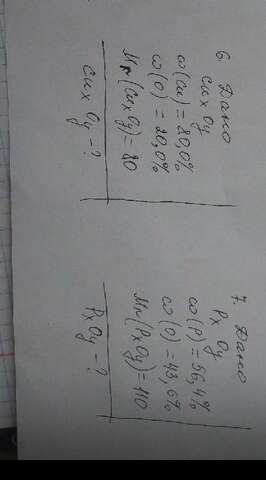 6. Дано
CuxOy
ω(Cu) = 80,0%
ω(O) = 20,0%
Mr(CuxOy) = 80
CuxOy - ?
7. Дано
PxOy
ω(P) = 56,4%
ω(O) = 43,6%
Mr(PxOy) = 110
PxOy - ?